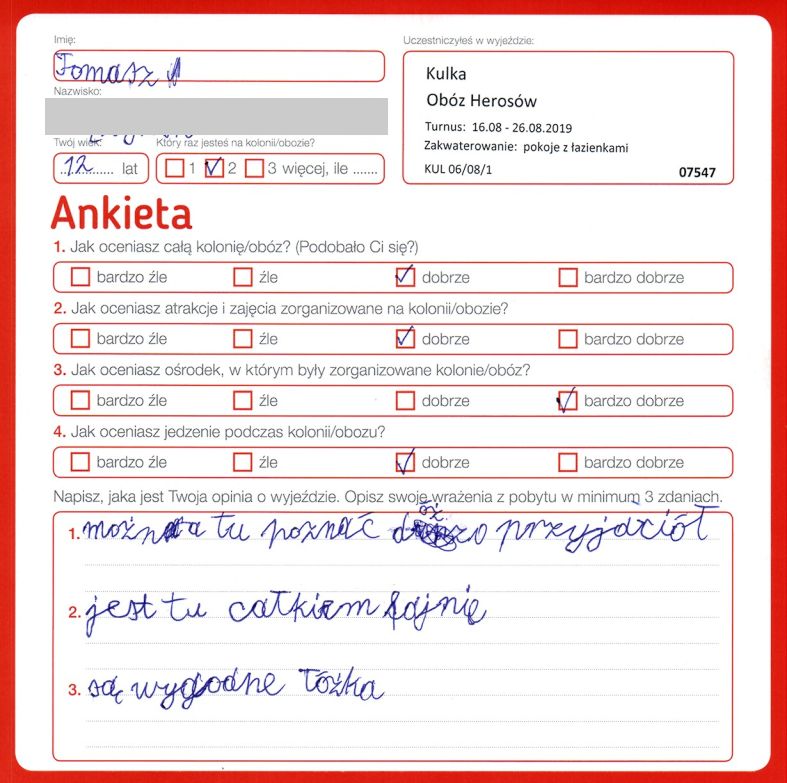 Imię:
Tomasz
Uczestniczyłeś w wyjeździe:
Kulka
Obóz Herosów
Turnus: 16.08 - 26.08.2019
Zakwaterowanie: pokoje z łazienkami
KUL 06/08/1
07547
Nazwisko:
Twój wiek:
12 lat
Który raz jesteś na kolonii/obozie?
1 2 3 więcej, ile .......
Ankieta
1. Jak oceniasz całą kolonię/obóz? (Podobało Ci się?)
bardzo źle źle dobrze bardzo dobrze
2. Jak oceniasz atrakcje i zajęcia zorganizowane na kolonii/obozie?
bardzo źle źle dobrze bardzo dobrze
3. Jak oceniasz ośrodek, w którym były zorganizowane kolonie/obóz?
bardzo źle źle dobrze bardzo dobrze
4. Jak oceniasz jedzenie podczas kolonii/obozu?
bardzo źle źle dobrze bardzo dobrze
Napisz, jaka jest Twoja opinia o wyjeździe. Opisz swoje wrażenia z pobytu w minimum 3 zdaniach.
1. można tu poznać dóżo przyjaciół
2. jest tu całkiem fajnię
3. są wygodne łóżka